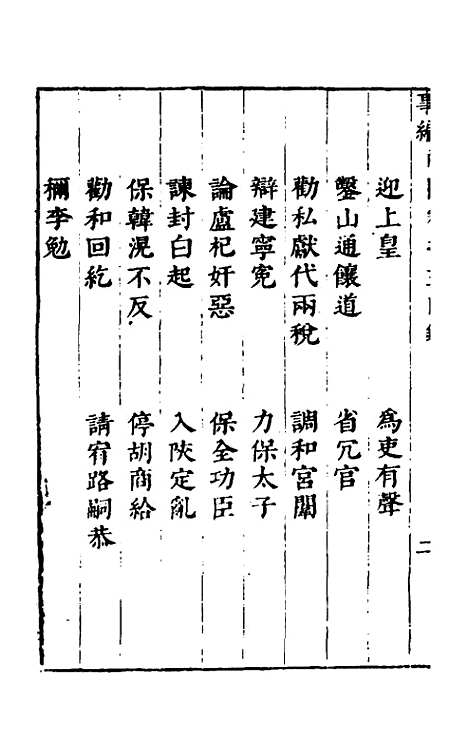 迎上皇　爲吏有聲
鑿山通饟道　省冗官
勸私獻代兩稅　調和宮闈
辯建寧寃　力保太子
論盧杞奸惡　保全功臣
諫封白起　入陝定亂
保韓滉不反　停胡商給
勸和回紇　請宥路嗣恭
稱李勉
二